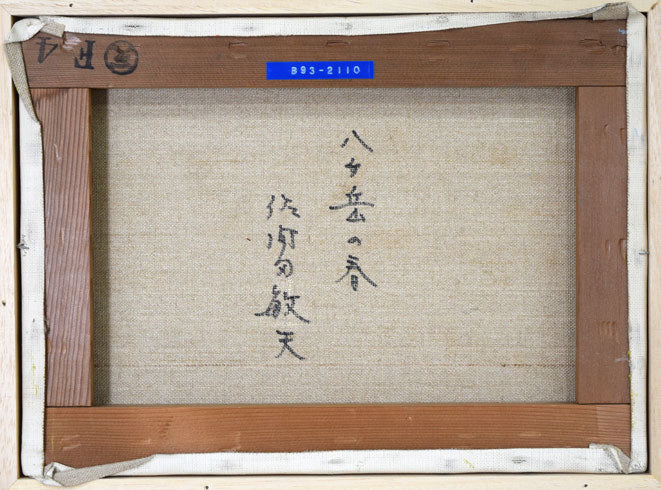 B93-2110
F4
八ヶ岳の春
佐間田敏夫